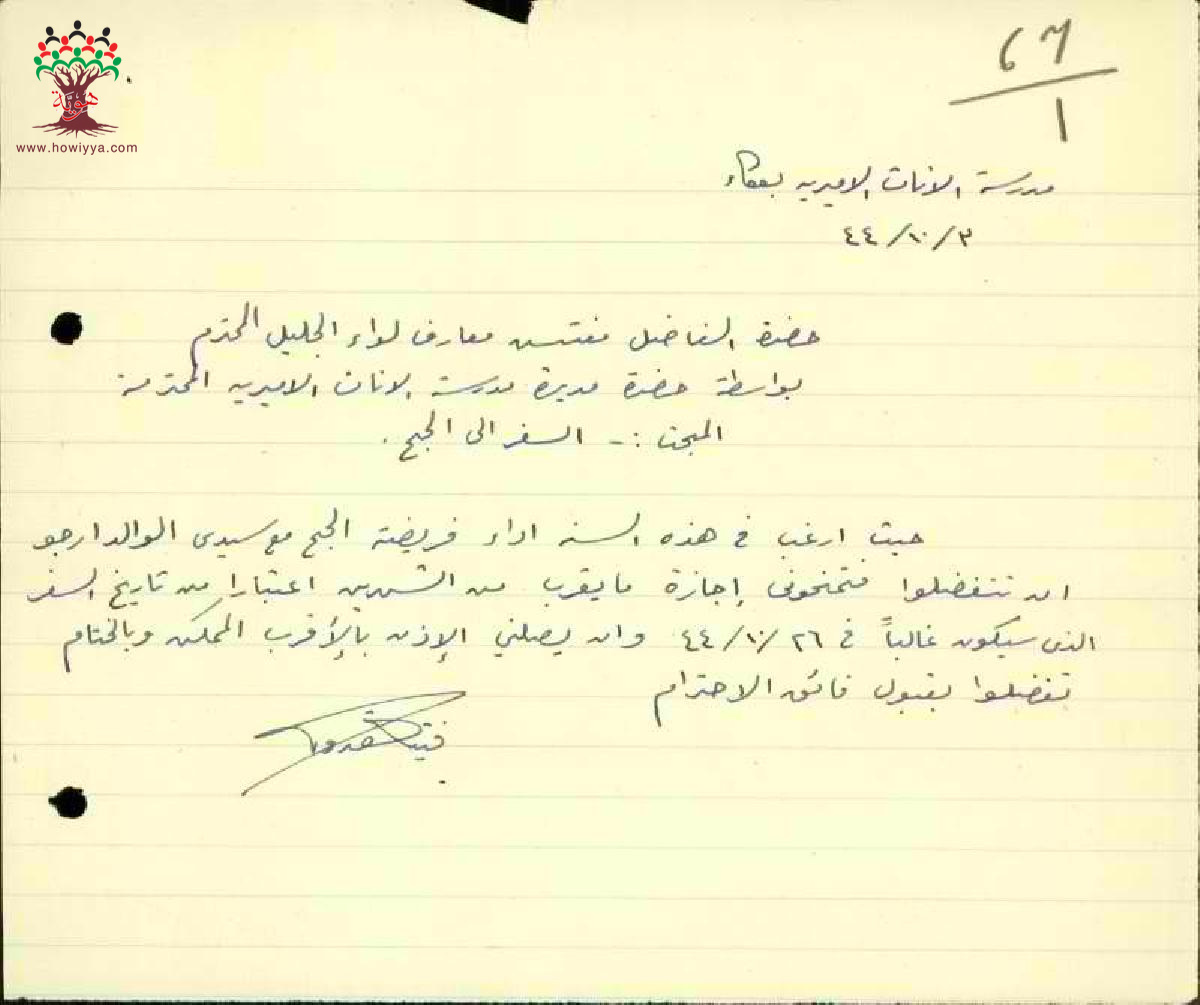 هوية
www.howiyya.com
67
1
مدرسة الاناث الاميريه بعكاء
٤٤/١٠/٣
حضرة الفاضل مفتش معارف لواء الجليل المحترم
بواسطة حضرة مديرة مدرسة الاناث الاميريه المحترمة
المبحث :- السفر الى الحج .
حيث ارغب في هذه السنه اداء فريضة الحج مع سيدي الوالد ارجو
ان تتفضلوا فتمنحوني إجازة ما يقرب من الشهرين اعتبارا من تاريخ السفر
الذي سيكون غالباً في ٤٤/١٠/٢٦ وان يصلني الإذن بالأقرب الممكن وبالختام
تفضلوا بقبول فائق الاحترام